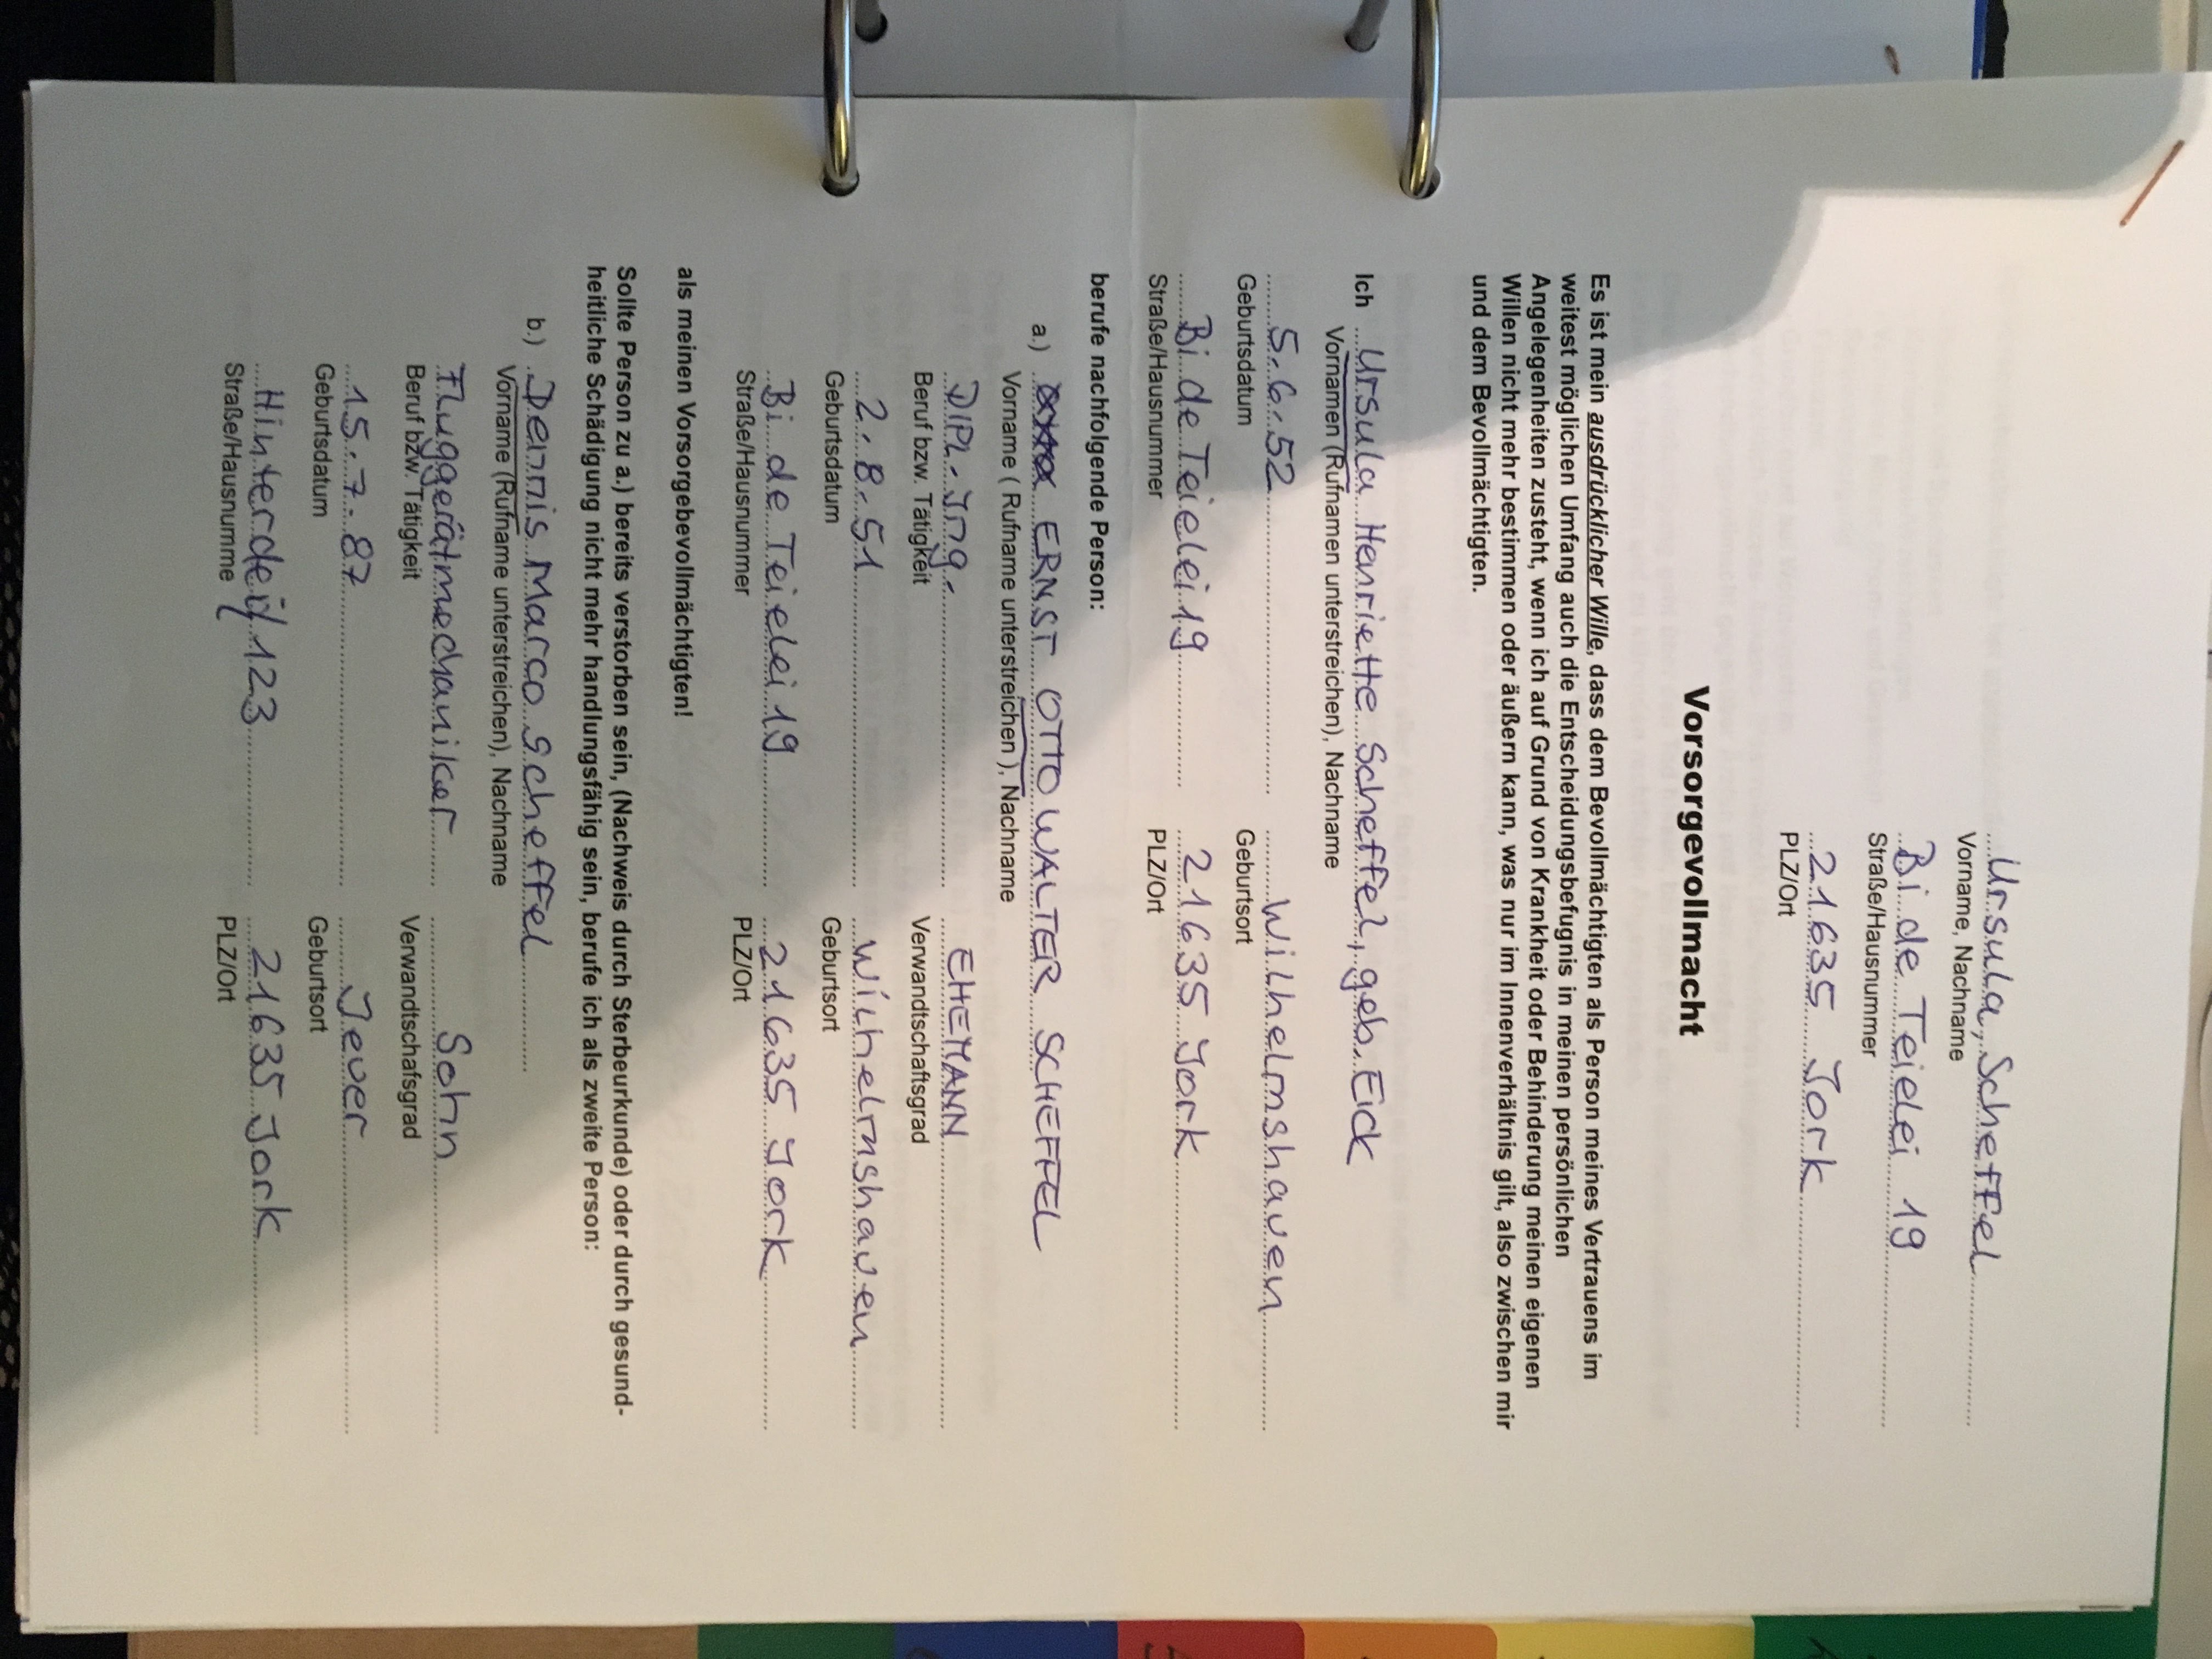 Ursula, Scheffel
Vorname, Nachname
Bi de Teielei 19
Straße/Hausnummer
21635 Jork
PLZ/Ort
Vorsorgevollmacht
Es ist mein ausdrücklicher Wille, dass dem Bevollmächtigten als Person meines Vertrauens im
weitest möglichen Umfang auch die Entscheidungsbefugnis in meinen persönlichen
Angelegenheiten zusteht, wenn ich auf Grund von Krankheit oder Behinderung meinen eigenen
Willen nicht mehr bestimmen oder äußern kann, was nur im Innenverhältnis gilt, also zwischen mir
und dem Bevollmächtigten.
Ich Ursula Henriette Scheffel, geb. Eick
Vornamen (Rufnamen unterstreichen), Nachname
5.6.52 Wilhelmshaven
Geburtsdatum Geburtsort
Bi de Teielei 19 21635 Jork
Straße/Hausnummer PLZ/Ort
berufe nachfolgende Person:
a.) ERNST OTTO WALTER SCHEFFEL
Vorname ( Rufname unterstreichen ), Nachname
DIPL.-Ing. EHEMANN
Beruf bzw. Tätigkeit Verwandtschaftsgrad
2.8.51 Wilhelmshaven
Geburtsdatum Geburtsort
Bi de Teielei 19 21635 Jork
Straße/Hausnummer PLZ/Ort
als meinen Vorsorgebevollmächtigten!
Sollte Person zu a.) bereits verstorben sein, (Nachweis durch Sterbeurkunde) oder durch gesund-
heitliche Schädigung nicht mehr handlungsfähig sein, berufe ich als zweite Person:
b.) Dennis Marco Scheffel
Vorname (Rufname unterstreichen), Nachname
Fluggerätmechaniker Sohn
Beruf bzw. Tätigkeit Verwandtschafsgrad
15.7.87 Jever
Geburtsdatum Geburtsort
Hinterdeich 123 21635 Jork
Straße/Hausnumme PLZ/Ort